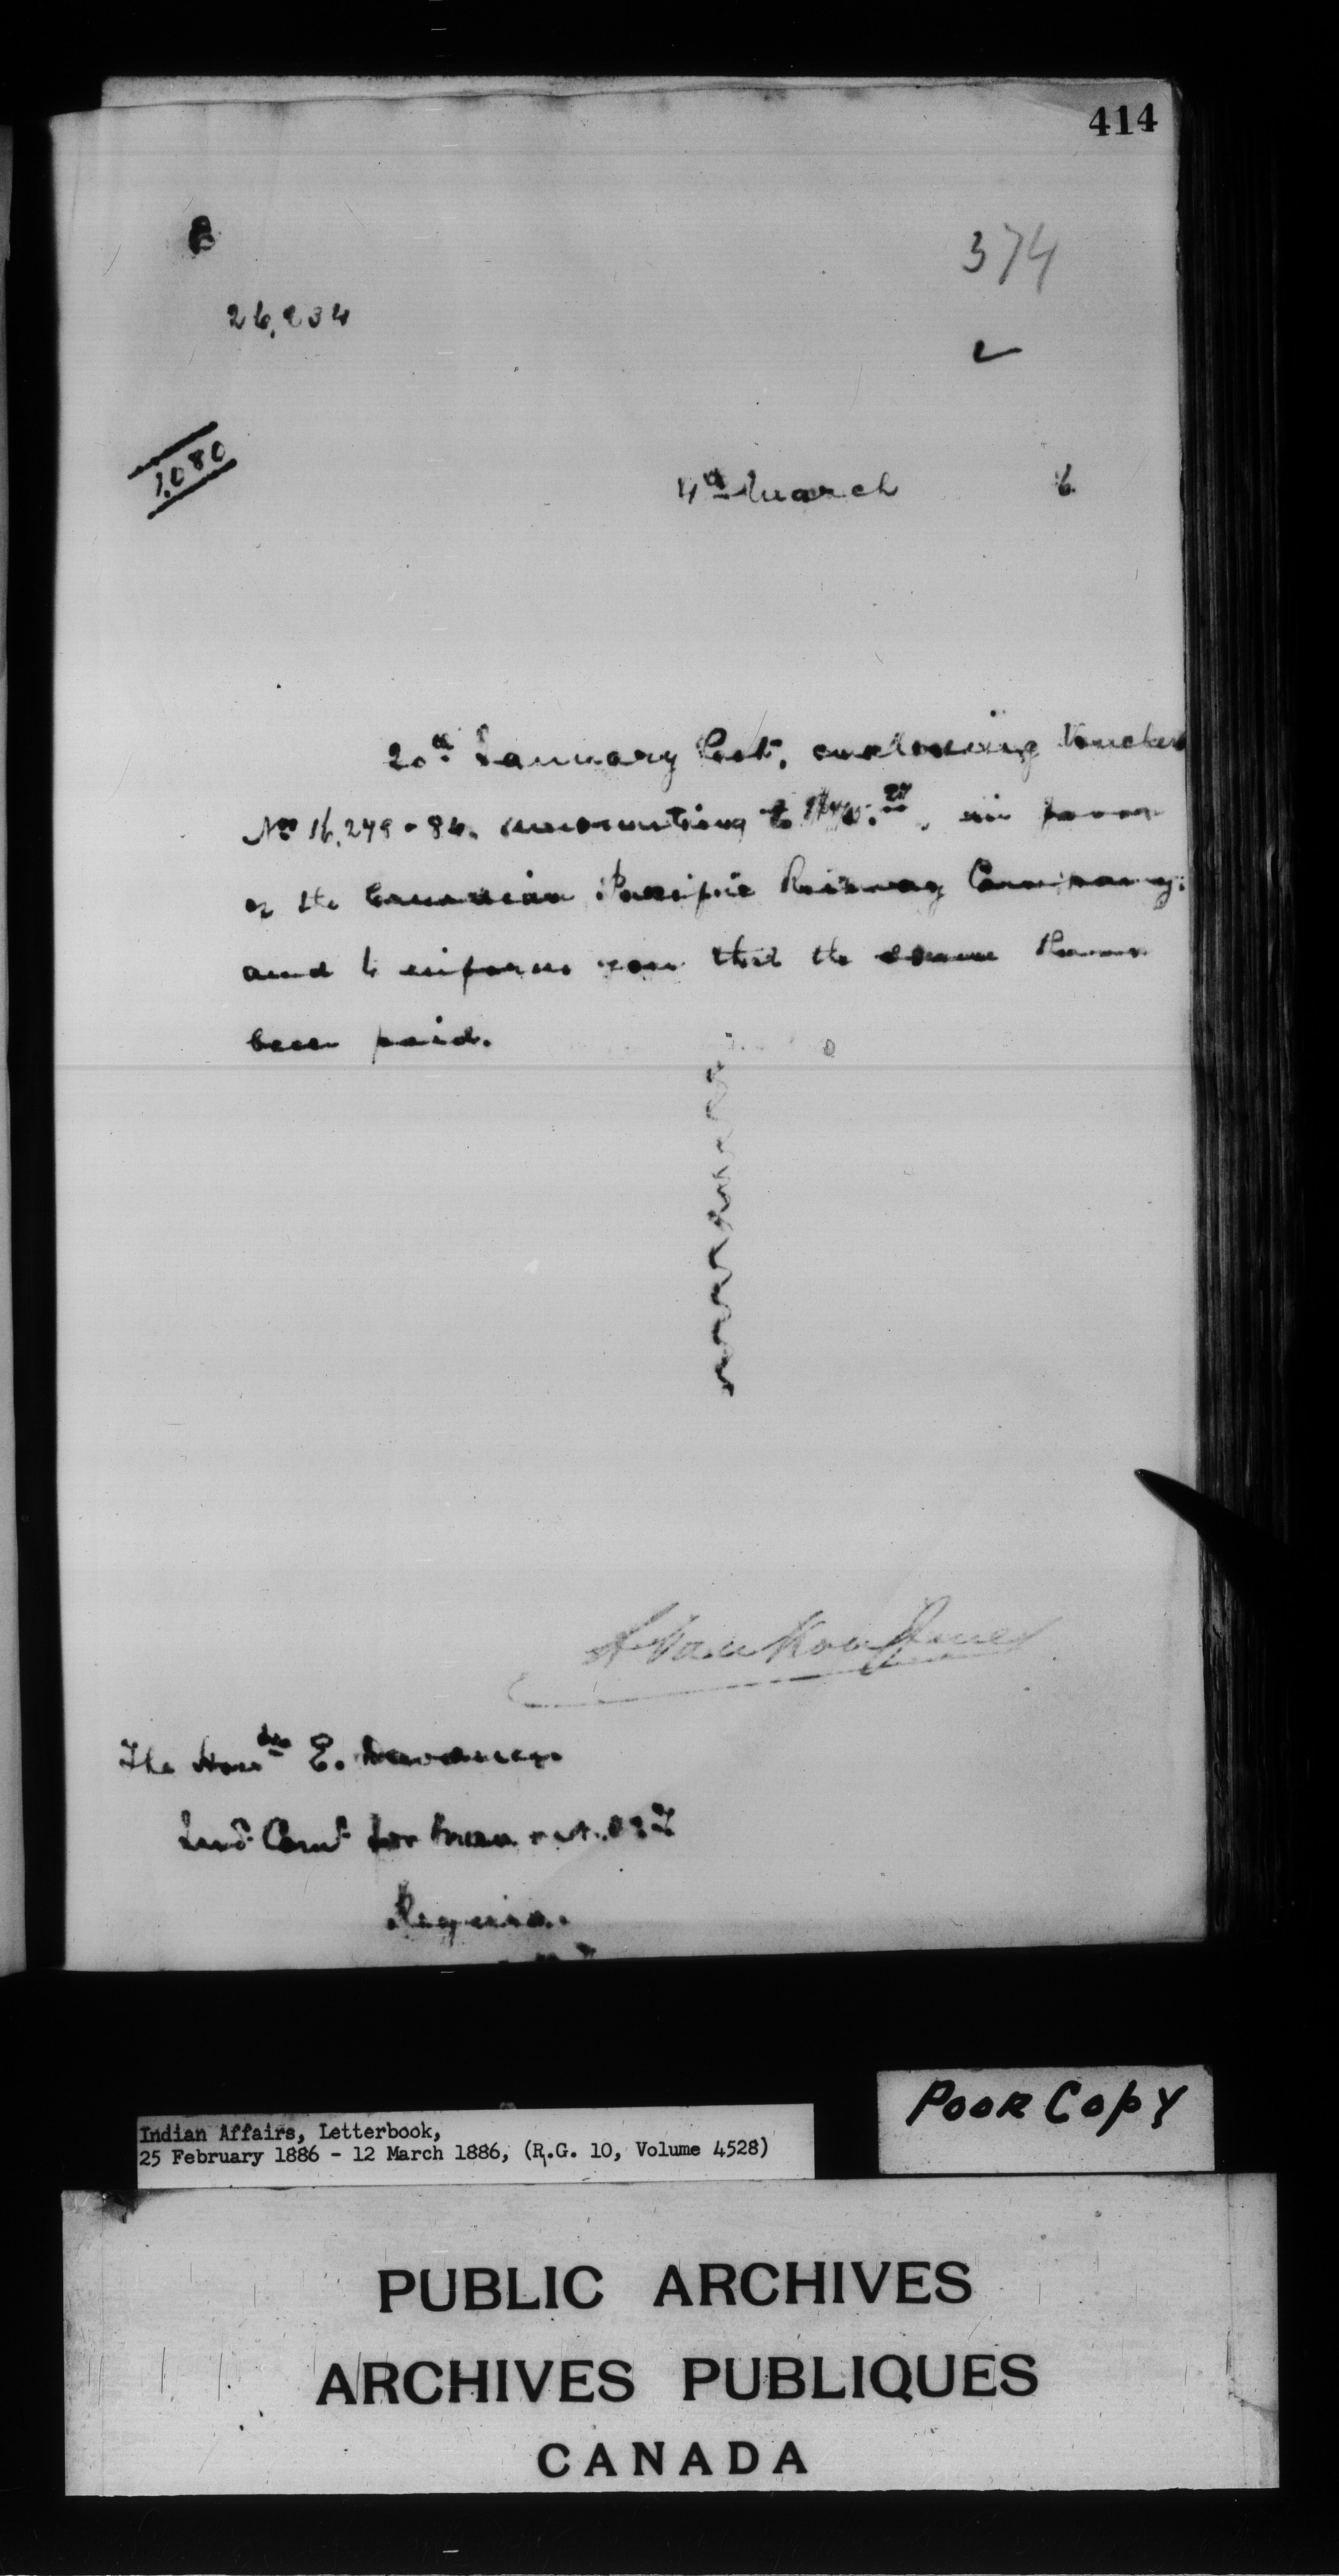 414
B
374
26,234
1,080
4th March 6
20th January last, enclosing vouchers
Nos 16,279-84, amounting to in favor
of the Canadian Pacific Railway Company,
and to inform you that the same have
been paid.
L. VanKoughnet
The Honble E. Dewdney
Ind. Comr for Man. & N.W.T.
Regina.
Poor Copy
Indian Affairs, Letterbook,
25 February 1886 - 12 March 1886, (R.G. 10, Volume 4528)
PUBLIC ARCHIVES
ARCHIVES PUBLIQUES
CANADA